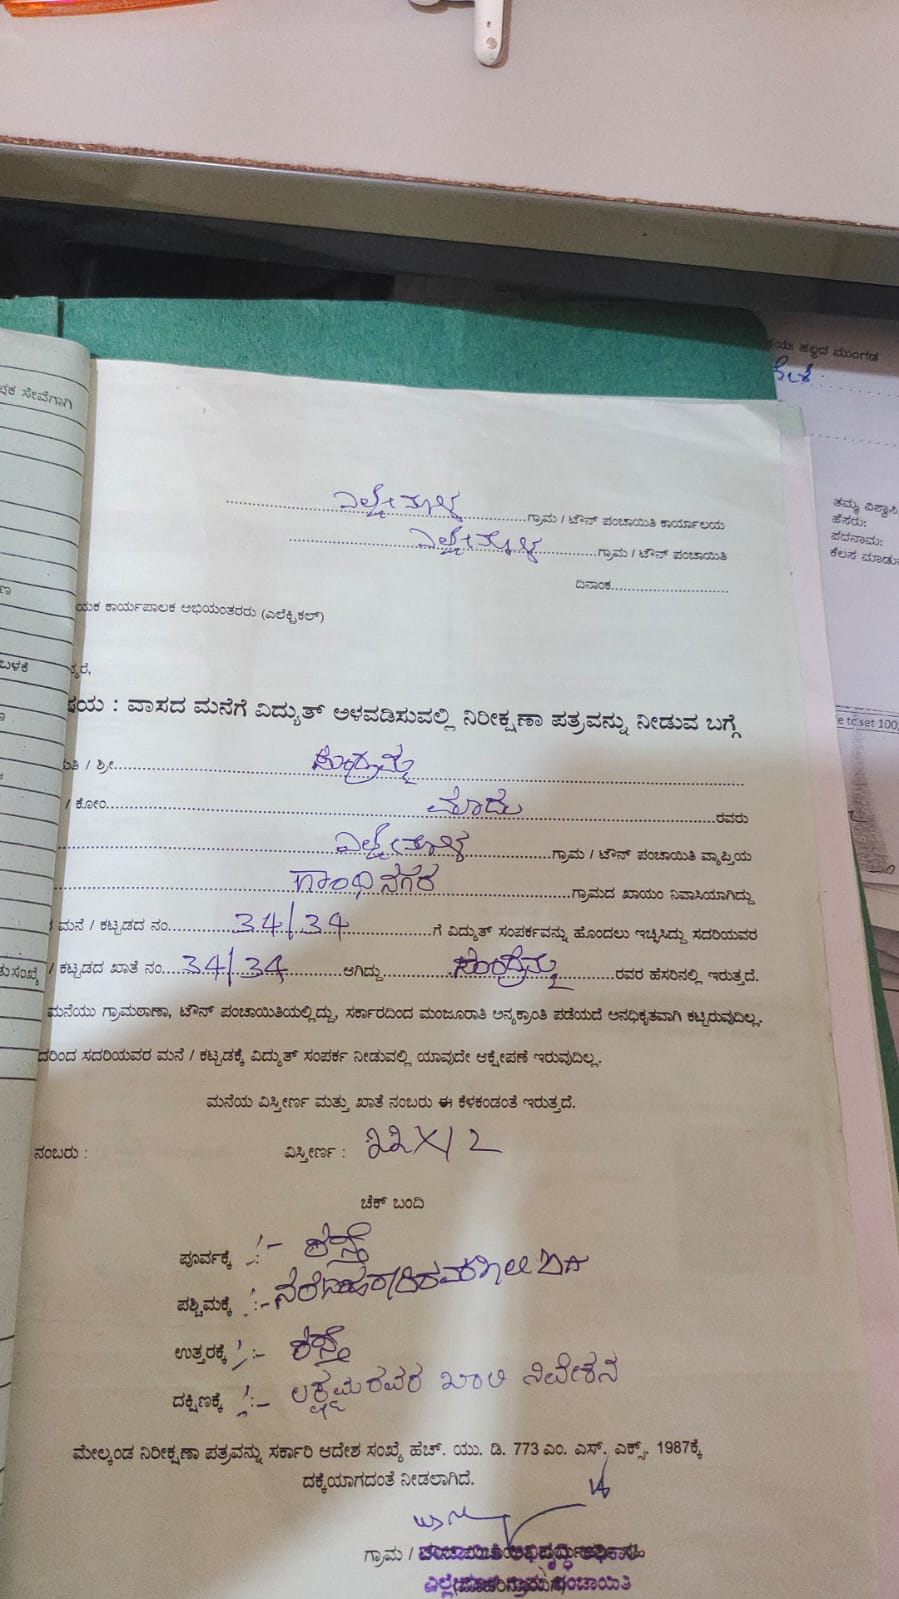 ಪಕ ಸೇವೆಗಾಗಿ
ಬಳಕೆ
ಗ್ರಾಮ / ಟೌನ್ ಪಂಚಾಯಿತಿ ಕಾರ್ಯಾಲಯ
ಗ್ರಾಮ / ಟೌನ್ ಪಂಚಾಯಿತಿ
ದಿನಾಂಕ
ಯಕ ಕಾರ್ಯಪಾಲಕ ಅಭಿಯಂತರರು (ಎಲೆಕ್ಟ್ರಿಕಲ್)
ಷಯ : ವಾಸದ ಮನೆಗೆ ವಿದ್ಯುತ್ ಅಳವಡಿಸುವಲ್ಲಿ ನಿರೀಕ್ಷಣಾ ಪತ್ರವನ್ನು ನೀಡುವ ಬಗ್ಗೆ
ತಿ / ಶ್ರೀ
/ ಕೋಂ. ಮಾದು ರವರು
ಗ್ರಾಮ / ಟೌನ್ ಪಂಚಾಯಿತಿ ವ್ಯಾಪ್ತಿಯ
ಗಾಂಧಿನಗರ ಗ್ರಾಮದ ಖಾಯಂ ನಿವಾಸಿಯಾಗಿದ್ದು
ಮನೆ / ಕಟ್ಟಡದ ನಂ. 34/34 ಗೆ ವಿದ್ಯುತ್ ಸಂಪರ್ಕವನ್ನು ಹೊಂದಲು ಇಚ್ಛಿಸಿದ್ದು ಸದರಿಯವರ
/ ಕಟ್ಟಡದ ಖಾತೆ ನಂ. 34/34 ಆಗಿದ್ದು ರವರ ಹೆಸರಿನಲ್ಲಿ ಇರುತ್ತದೆ.
ಮನೆಯು ಗ್ರಾಮಠಾಣಾ, ಟೌನ್ ಪಂಚಾಯಿತಿಯಲ್ಲಿದ್ದು, ಸರ್ಕಾರದಿಂದ ಮಂಜೂರಾತಿ ಅನ್ಯಕ್ರಾಂತಿ ಪಡೆಯದೆ ಅನಧಿಕೃತವಾಗಿ ಕಟ್ಟಿರುವುದಿಲ್ಲ.
ದರಿಂದ ಸದರಿಯವರ ಮನೆ / ಕಟ್ಟಡಕ್ಕೆ ವಿದ್ಯುತ್ ಸಂಪರ್ಕ ನೀಡುವಲ್ಲಿ ಯಾವುದೇ ಆಕ್ಷೇಪಣೆ ಇರುವುದಿಲ್ಲ.
ಮನೆಯ ವಿಸ್ತೀರ್ಣ ಮತ್ತು ಖಾತೆ ನಂಬರು ಈ ಕೆಳಕಂಡಂತೆ ಇರುತ್ತದೆ.
ನಂಬರು : ವಿಸ್ತೀರ್ಣ : 22X12
ಚೆಕ್ ಬಂದಿ
ಪೂರ್ವಕ್ಕೆ :- ರಸ್ತೆ
ಪಶ್ಚಿಮಕ್ಕೆ :-
ಉತ್ತರಕ್ಕೆ :- ರಸ್ತೆ
ದಕ್ಷಿಣಕ್ಕೆ :- ಲಕ್ಷ್ಮಮ್ಮರವರ ಖಾಲಿ ನಿವೇಶನ
ಮೇಲ್ಕಂಡ ನಿರೀಕ್ಷಣಾ ಪತ್ರವನ್ನು ಸರ್ಕಾರಿ ಆದೇಶ ಸಂಖ್ಯೆ ಹೆಚ್. ಯು. ಡಿ. 773 ಎಂ. ಎಸ್. ಎಕ್ಸ್. 1987ಕ್ಕೆ
ದಕ್ಕೆಯಾಗದಂತೆ ನೀಡಲಾಗಿದೆ.
ಗ್ರಾಮ /
ಪಂಚಾಯಿತಿ
ಯಃ ಹಬ್ಬದ ಮುಂಗಡ
ತಮ್ಮ ವಿಶ್ವಾಸಿ
ಹೆಸರು:
ಪದನಾಮ:
ಕೆಲಸ ಮಾಡು
e to set 100,